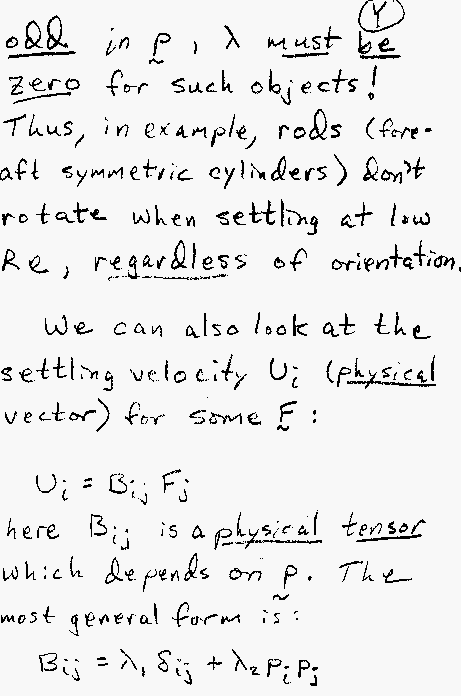 Y
odd in p, λ must be
zero for such objects!
Thus, in example, rods (fore-
aft symmetric cylinders) don't
rotate when settling at low
Re, regardless of orientation.
We can also look at the
settling velocity Uᵢ (physical
vector) for some F :
Uᵢ = Bᵢⱼ Fⱼ
here Bᵢⱼ is a physical tensor
which depends on p. The
most general form is:
Bᵢⱼ = λ₁ δᵢⱼ + λ₂ pᵢ pⱼ